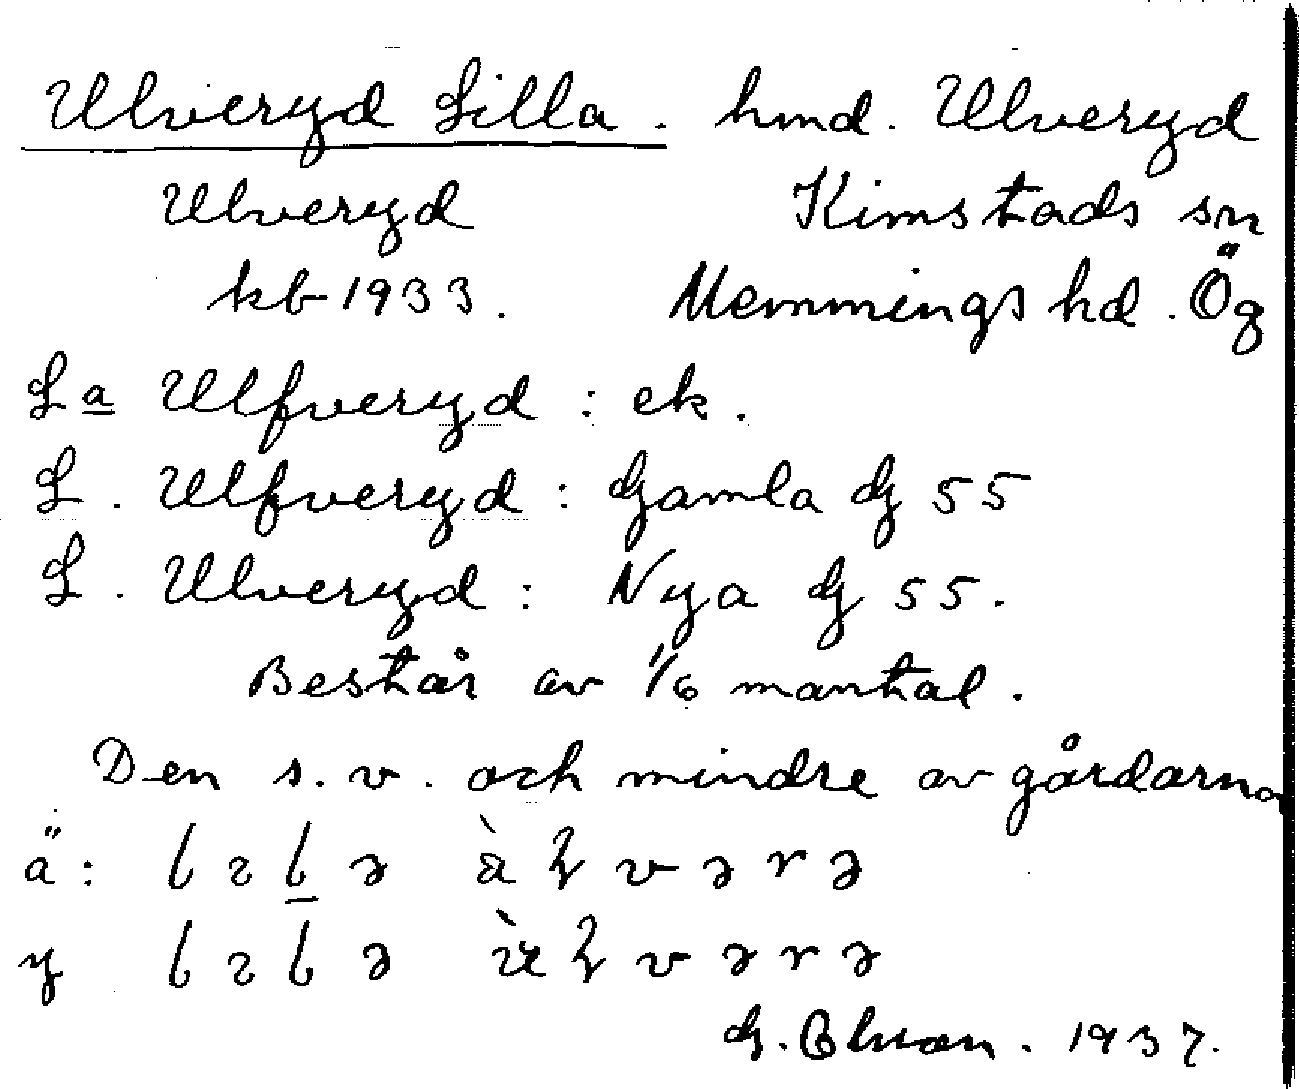 Ulveryd Lilla. hmd. Ulveryd
Ulveryd Kimstads sn
kb 1933. Memmings hd. Ög
La Ulfveryd: ek.
L. Ulfveryd: Gamla G 55
L. Ulveryd: Nya G 55.
Består av 1/6 mantal.
Den s.v. och mindre av gårdarna
ä:
y
G. 1937.